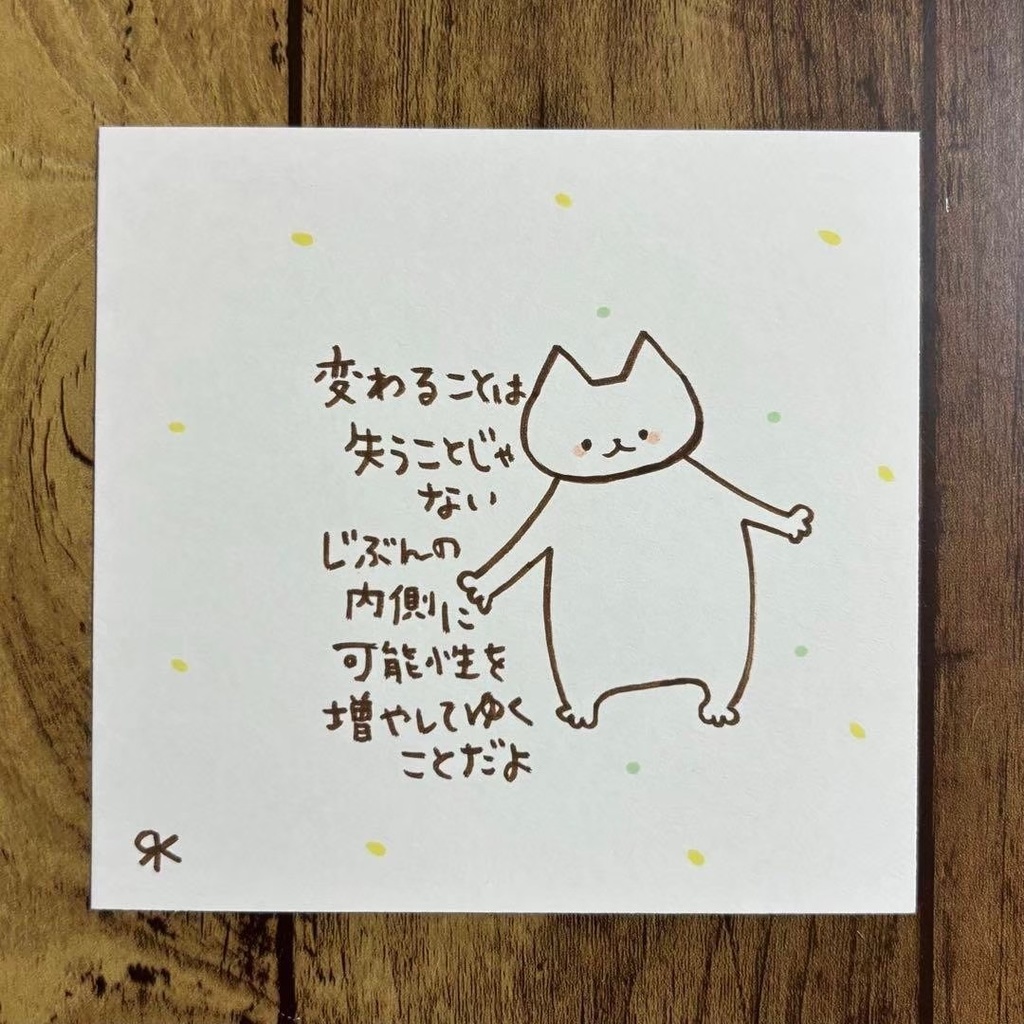 変わることは
失うことじゃ
ない
じぶんの
内側に
可能性を
増やしてゆく
ことだよ
RK